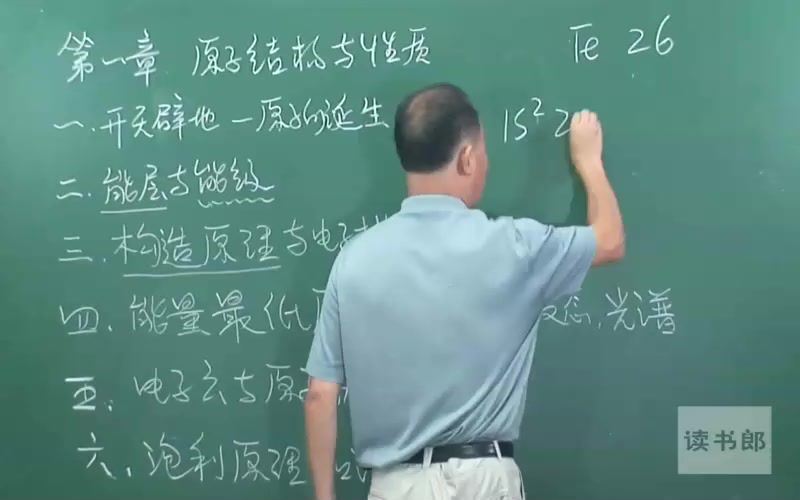 第一章 原子结构与性质
Fe 26
一、开天辟地—原子的诞生
1S² 2
二、能层与能级
三、构造原理与电子
四、能量最低 态、光谱
五、电子云与原
六、泡利原理
读书郎